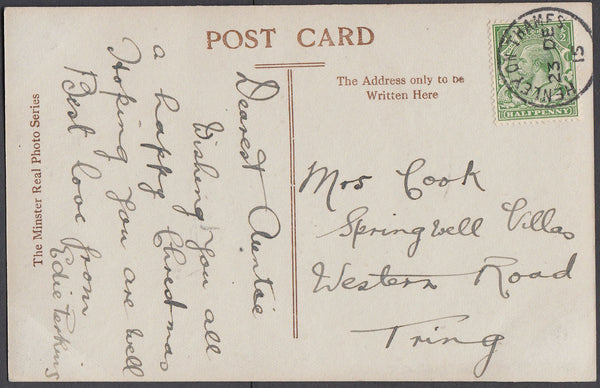 POST CARD
The Address only to be
Written Here
The Minster Real Photo Series
Dearest Auntie
Wishing you all
a happy Christmas
Hoping you are well
Best love from
Edie Perkins
Mrs Cook
Springwell Villas
Western Road
Tring
HENLEY ON THAMES
23 DE
15
HALFPENNY